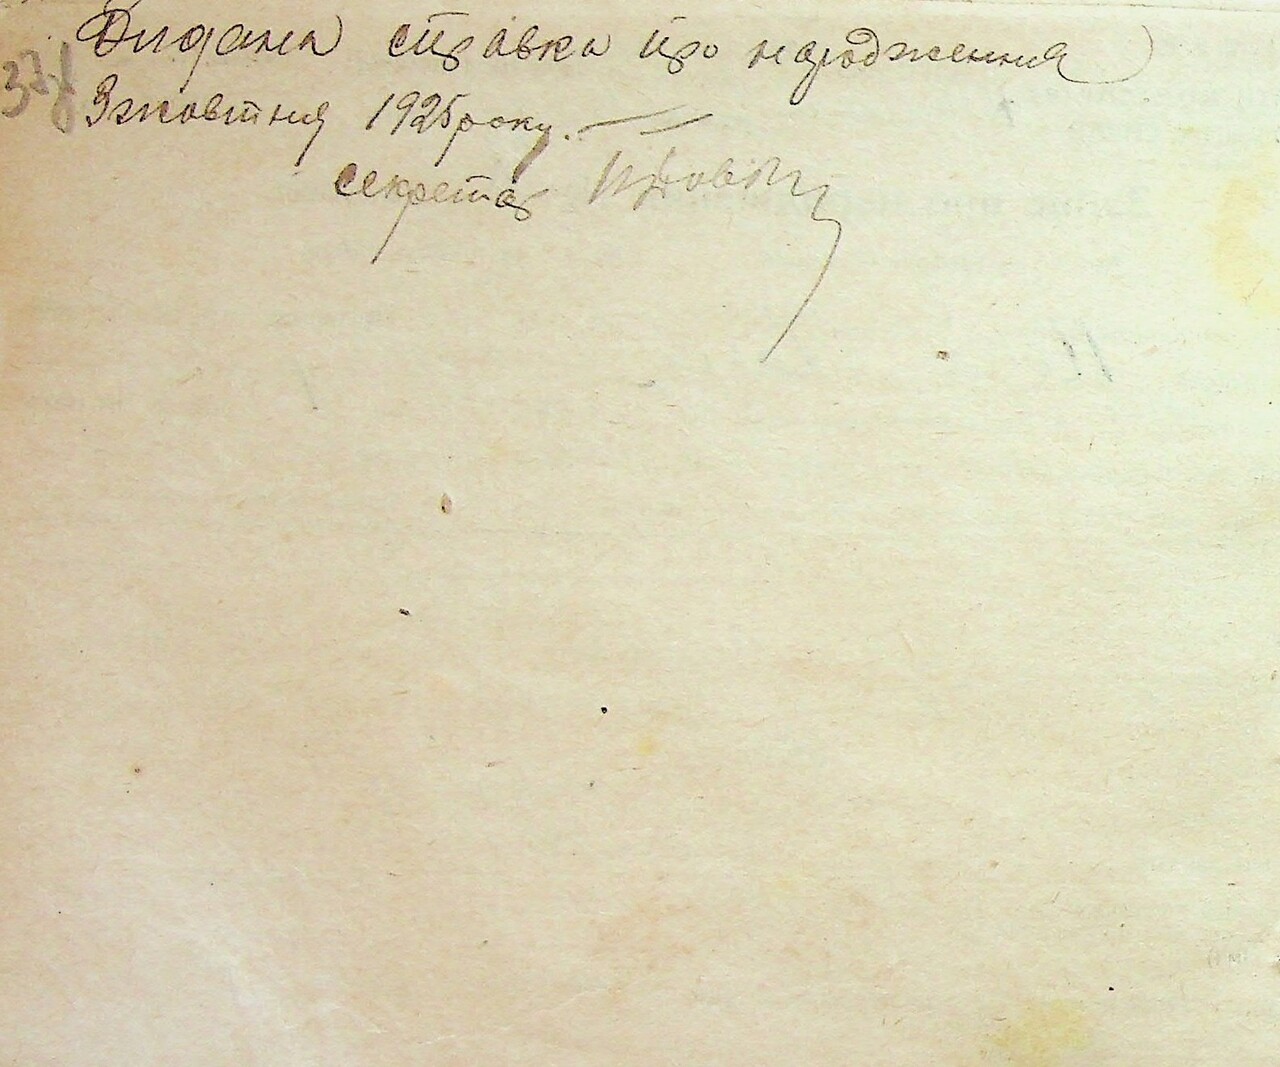 Видана справка про народження
3 жовтня 1925 року.
секретар